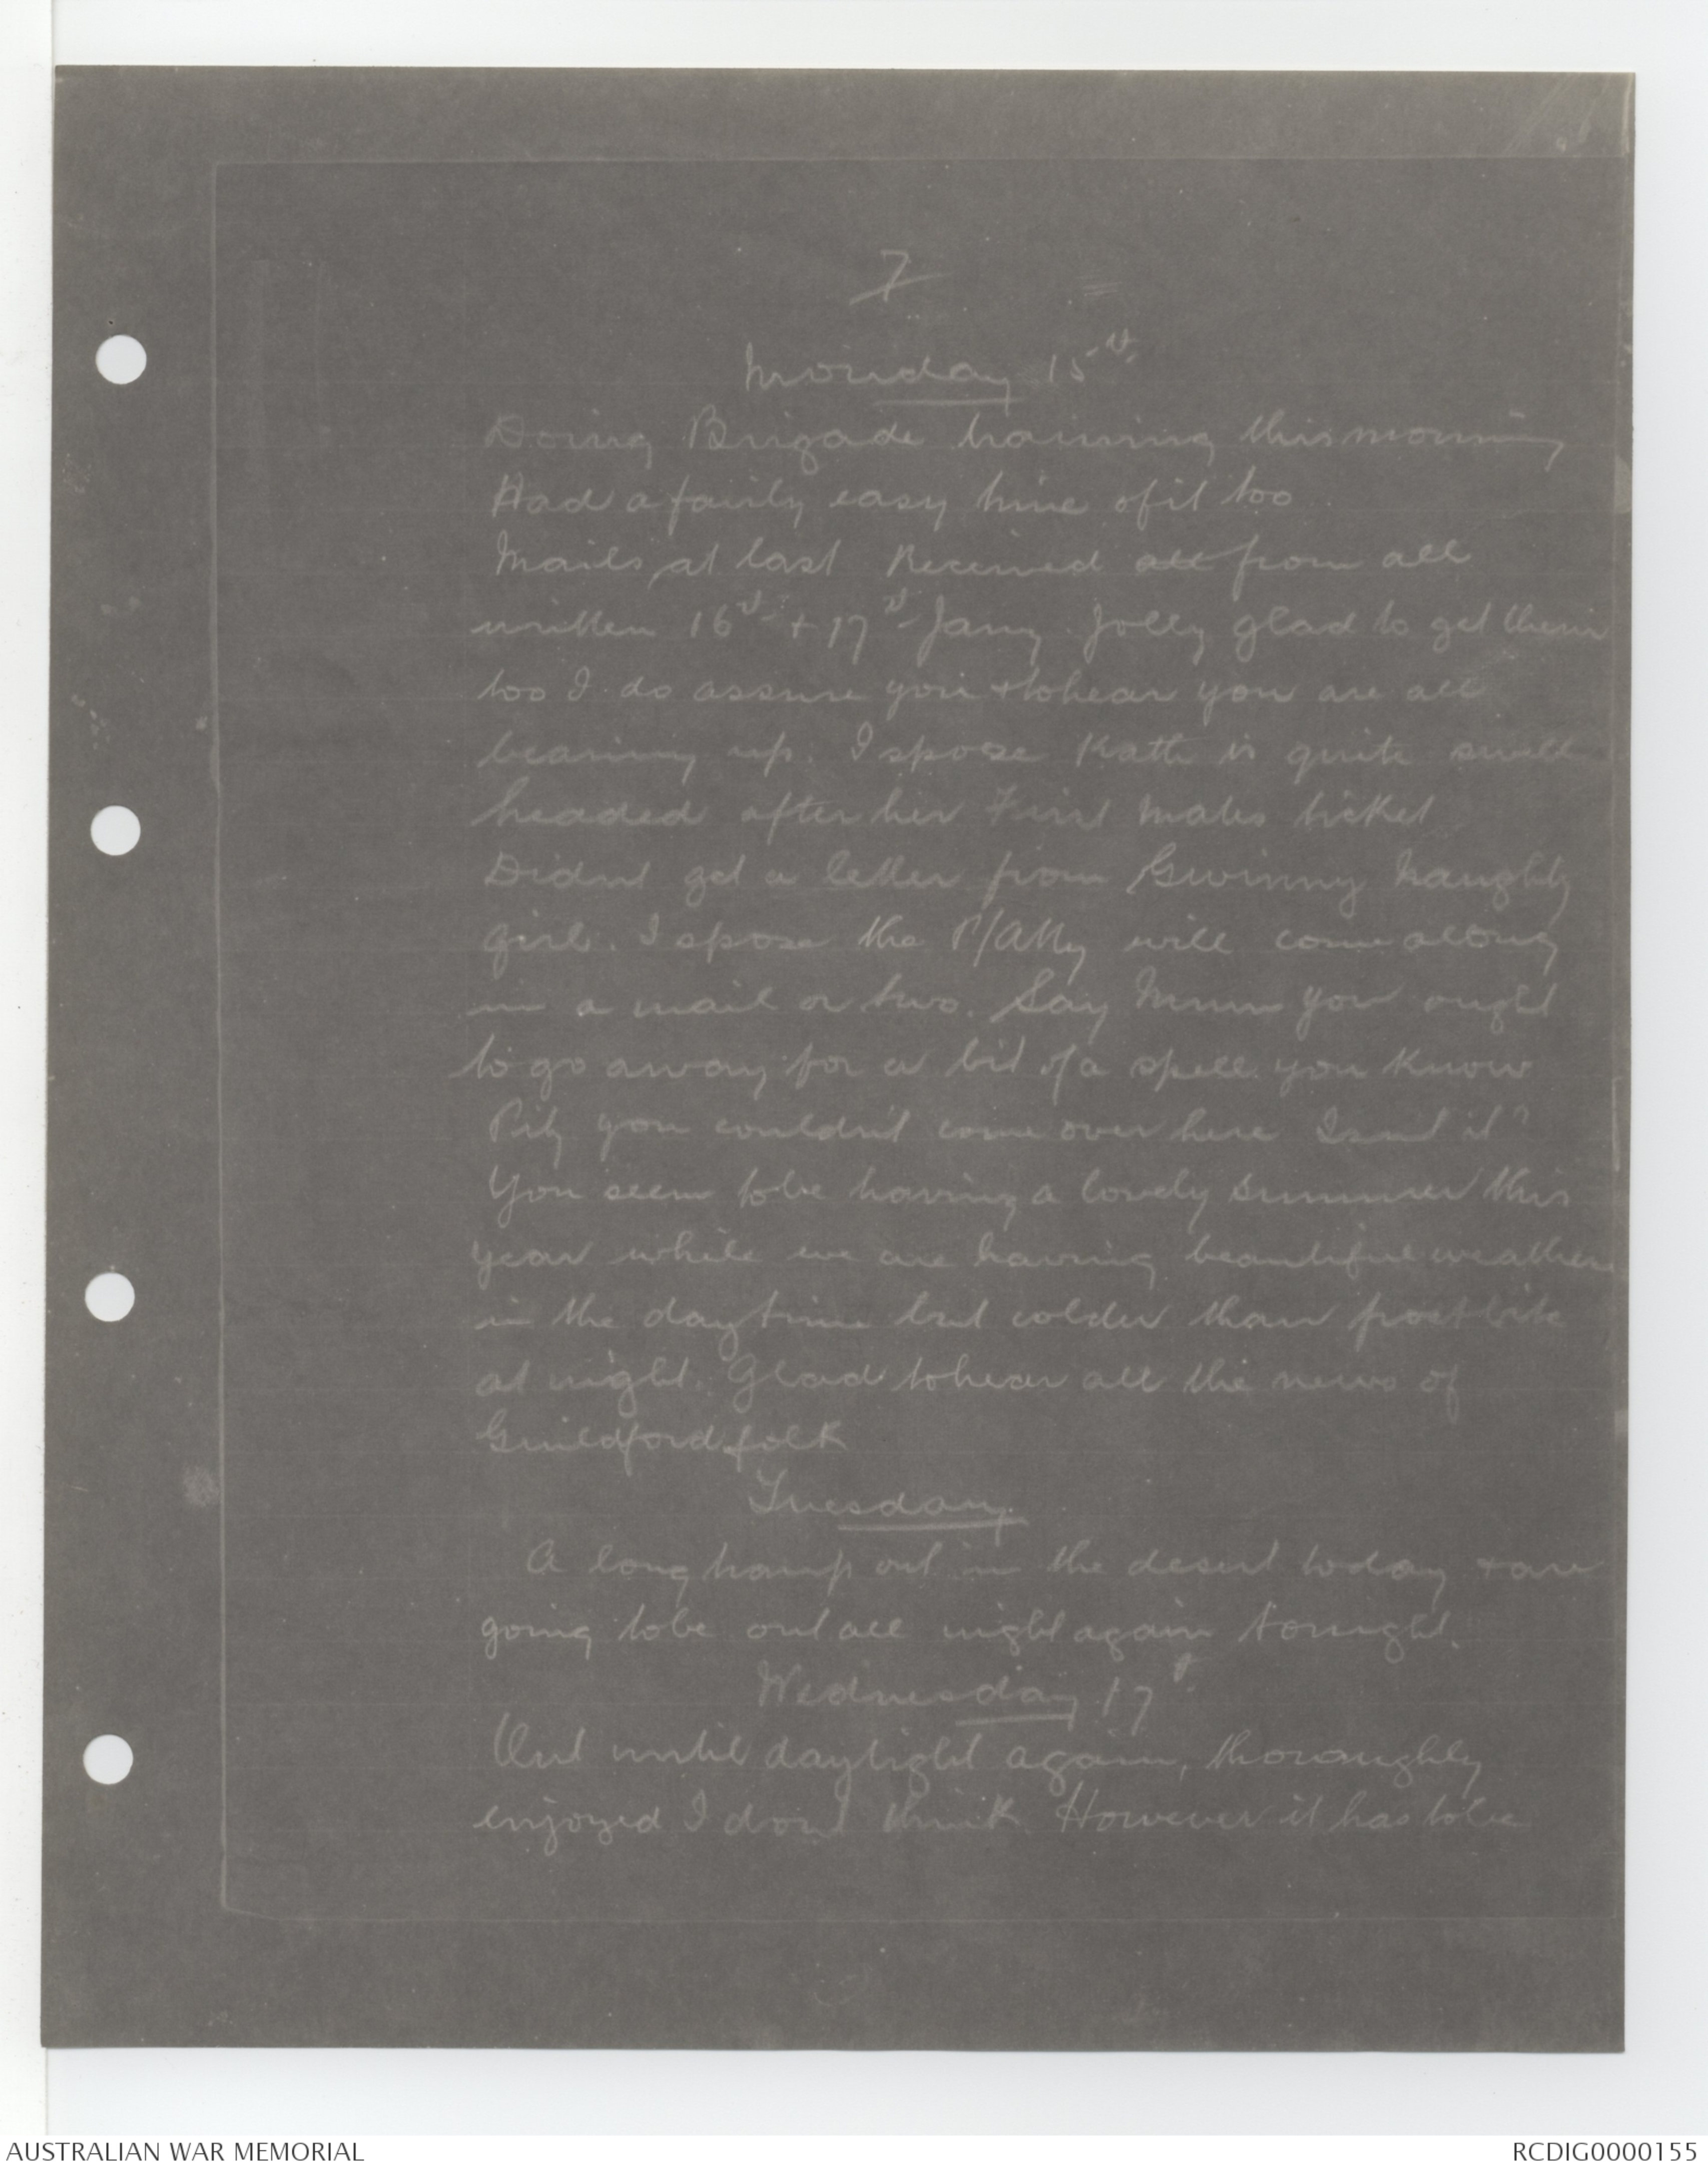 7
Monday 15th
Doing Brigade training this morning
Had a fairly easy time of it too
Mails at last Received all from all
written 16th + 17th Jany. Jolly glad to get them
too I do assure you + to hear you are all
bearing up. I spose Kath is quite swell
headed after her First Mates ticket
Didnt get a letter from Gwinny naughty
girl. I spose the P/Atty will come along
in a mail or two. Say Mum you ought
to go away for a bit of a spell you know
Pity you couldn't come over here Isn't it?
You seem to be having a lovely summer this
year while we are having beautiful weather
in the daytime but colder than frostbite
at night. Glad to hear all the news of
Guildford folk
Tuesday
A long tramp out in the desert today + are
going to be out all night again tonight.
Wednesday 17th
Out until daylight again, thoroughly
enjoyed I dont think. However it has to be
AUSTRALIAN WAR MEMORIAL
RCDIG0000155